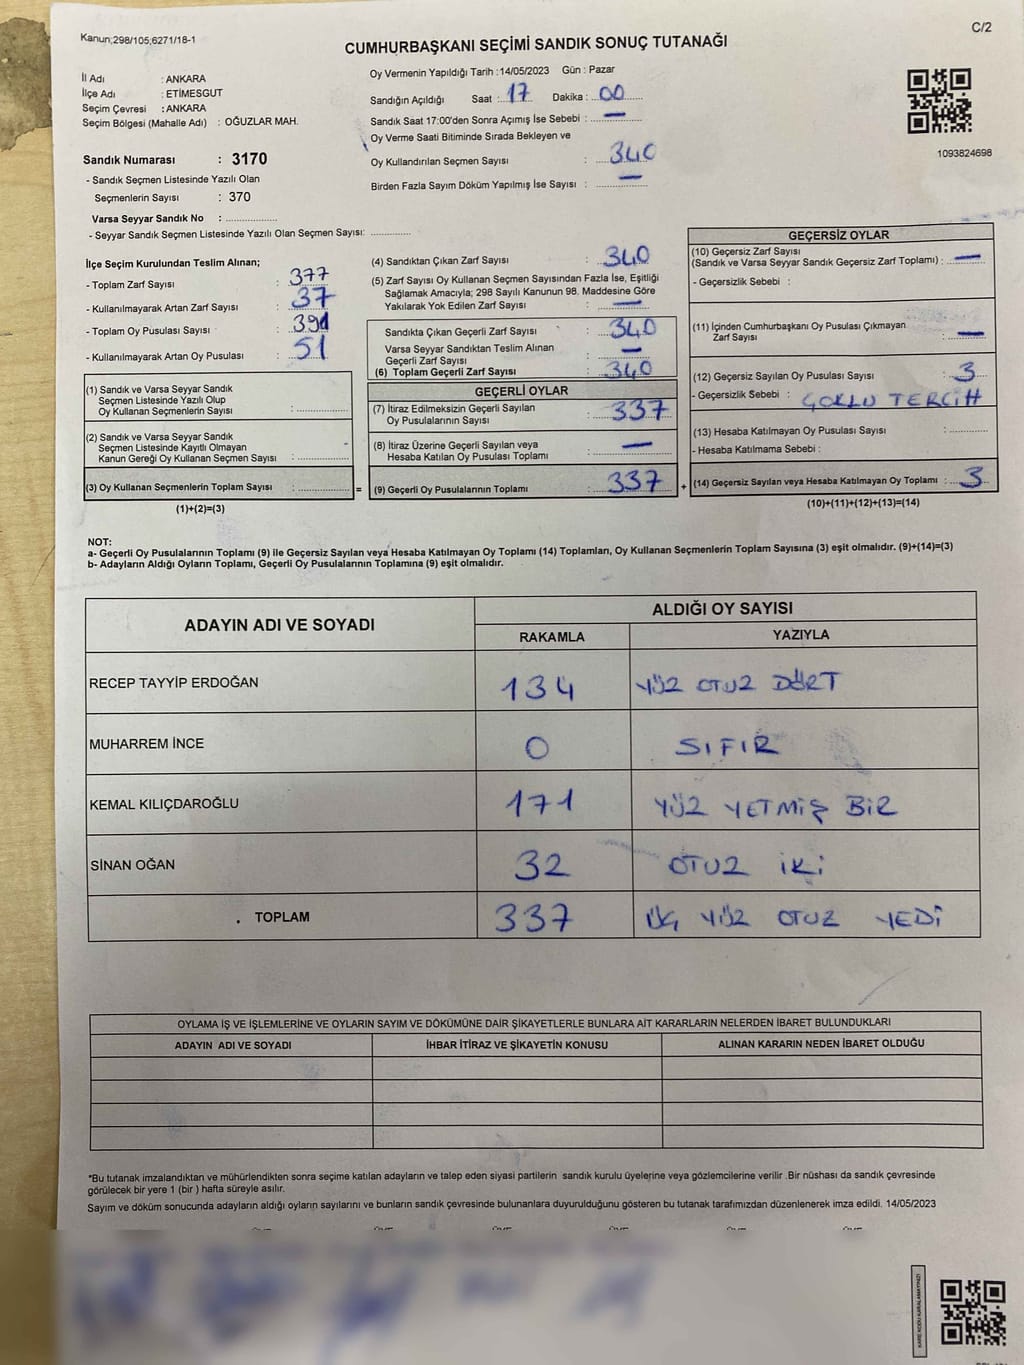 Kanun;298/105;6271/18-1
C/2
CUMHURBAŞKANI SEÇİMİ SANDIK SONUÇ TUTANAĞI
İl Adı : ANKARA
İlçe Adı : ETİMESGUT
Seçim Çevresi : ANKARA
Seçim Bölgesi (Mahalle Adı) : OĞUZLAR MAH.
Sandık Numarası : 3170
- Sandık Seçmen Listesinde Yazılı Olan
Seçmenlerin Sayısı : 370
Varsa Seyyar Sandık No : ................
- Seyyar Sandık Seçmen Listesinde Yazılı Olan Seçmen Sayısı: ............
Oy Vermenin Yapıldığı Tarih :14/05/2023 Gün : Pazar
Sandığın Açıldığı Saat : 17 Dakika : 00
Sandık Saat 17:00'den Sonra Açımış İse Sebebi : —
Oy Verme Saati Bitiminde Sırada Bekleyen ve
Oy Kullandırılan Seçmen Sayısı : 340
Birden Fazla Sayım Döküm Yapılmış İse Sayısı : —
1093824698
İlçe Seçim Kurulundan Teslim Alınan;
- Toplam Zarf Sayısı : 377
- Kullanılmayarak Artan Zarf Sayısı : 37
- Toplam Oy Pusulası Sayısı : 391
- Kullanılmayarak Artan Oy Pusulası : 51
(1) Sandık ve Varsa Seyyar Sandık
Seçmen Listesinde Yazılı Olup
Oy Kullanan Seçmenlerin Sayısı : ................
(2) Sandık ve Varsa Seyyar Sandık
Seçmen Listesinde Kayıtlı Olmayan
Kanun Gereği Oy Kullanan Seçmen Sayısı : ................
(3) Oy Kullanan Seçmenlerin Toplam Sayısı : ................ =
(1)+(2)=(3)
(4) Sandıktan Çıkan Zarf Sayısı : 340
(5) Zarf Sayısı Oy Kullanan Seçmen Sayısından Fazla İse, Eşitliği
Sağlamak Amacıyla; 298 Sayılı Kanunun 98. Maddesine Göre
Yakılarak Yok Edilen Zarf Sayısı : —
Sandıkta Çıkan Geçerli Zarf Sayısı : 340
Varsa Seyyar Sandıktan Teslim Alınan
Geçerli Zarf Sayısı : —
(6) Toplam Geçerli Zarf Sayısı : 340
GEÇERLİ OYLAR
(7) İtiraz Edilmeksizin Geçerli Sayılan
Oy Pusulalarının Sayısı : 337
(8) İtiraz Üzerine Geçerli Sayılan veya
Hesaba Katılan Oy Pusulası Toplamı : —
(9) Geçerli Oy Pusulalarının Toplamı : 337 +
GEÇERSİZ OYLAR
(10) Geçersiz Zarf Sayısı
(Sandık ve Varsa Seyyar Sandık Geçersiz Zarf Toplamı) : —
- Geçersizlik Sebebi :
(11) İçinden Cumhurbaşkanı Oy Pusulası Çıkmayan
Zarf Sayısı : —
(12) Geçersiz Sayılan Oy Pusulası Sayısı : 3
- Geçersizlik Sebebi : ÇOKLU TERCİH
(13) Hesaba Katılmayan Oy Pusulası Sayısı : ............
- Hesaba Katılmama Sebebi :
(14) Geçersiz Sayılan veya Hesaba Katılmayan Oy Toplamı : 3
(10)+(11)+(12)+(13)=(14)
NOT:
a- Geçerli Oy Pusulalarının Toplamı (9) ile Geçersiz Sayılan veya Hesaba Katılmayan Oy Toplamı (14) Toplamları, Oy Kullanan Seçmenlerin Toplam Sayısına (3) eşit olmalıdır. (9)+(14)=(3)
b- Adayların Aldığı Oyların Toplamı, Geçerli Oy Pusulalarının Toplamına (9) eşit olmalıdır.
ADAYIN ADI VE SOYADI ALDIĞI OY SAYISI
RAKAMLA YAZIYLA
RECEP TAYYİP ERDOĞAN 134 YÜZ OTUZ DÖRT
MUHARREM İNCE 0 SIFIR
KEMAL KILIÇDAROĞLU 171 YÜZ YETMİŞ BİR
SİNAN OĞAN 32 OTUZ İKİ
TOPLAM 337 ÜÇ YÜZ OTUZ YEDİ
OYLAMA İŞ VE İŞLEMLERİNE VE OYLARIN SAYIM VE DÖKÜMÜNE DAİR ŞİKAYETLERLE BUNLARA AİT KARARLARIN NELERDEN İBARET BULUNDUKLARI
ADAYIN ADI VE SOYADI İHBAR İTİRAZ VE ŞİKAYETİN KONUSU ALINAN KARARIN NEDEN İBARET OLDUĞU
*Bu tutanak imzalandıktan ve mühürlendikten sonra seçime katılan adayların ve talep eden siyasi partilerin sandık kurulu üyelerine veya gözlemcilerine verilir .Bir nüshası da sandık çevresinde
görülecek bir yere 1 (bir ) hafta süreyle asılır.
Sayım ve döküm sonucunda adayların aldığı oyların sayılarını ve bunların sandık çevresinde bulunanlara duyurulduğunu gösteren bu tutanak tarafımızdan düzenlenerek imza edildi. 14/05/2023
KARE KODU KARALAMAYINIZ!